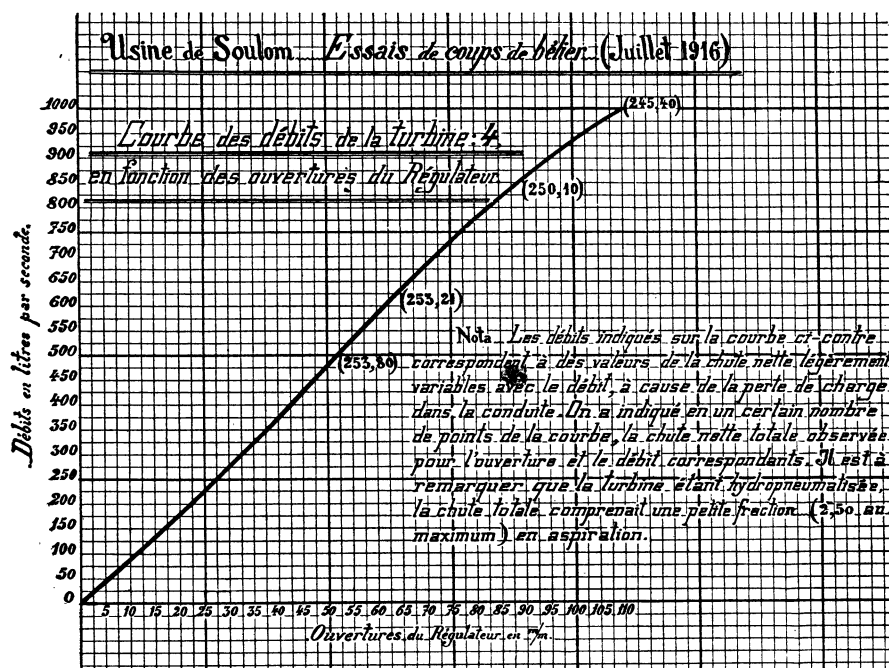 Usine de Soulom Essais de coups de bélier (Juillet 1916)
Courbe des débits de la turbine: 4,
en fonction des ouvertures du Régulateur
Débits en litres par seconde.
1000
950
900
850
800
750
700
650
600
550
500
450
400
350
300
250
200
150
100
50
0
(245,40)
(250,10)
(253,21)
(253,80)
Nota Les débits indiqués sur la courbe ci-contre
correspondent à des valeurs de la chute nette légèrement
variables avec le débit, à cause de la perte de charge
dans la conduite. On a indiqué en un certain nombre
de points de la courbe, la chute nette totale observée
pour l'ouverture et le débit correspondants. Il est à
remarquer que la turbine étant hydropneumatisée,
la chute totale comprenait une petite fraction (2,50 au
maximum) en aspiration.
5 10 15 20 25 30 35 40 45 50 55 60 65 70 75 80 85 90 95 100 105 110
Ouvertures du Régulateur en m/m.